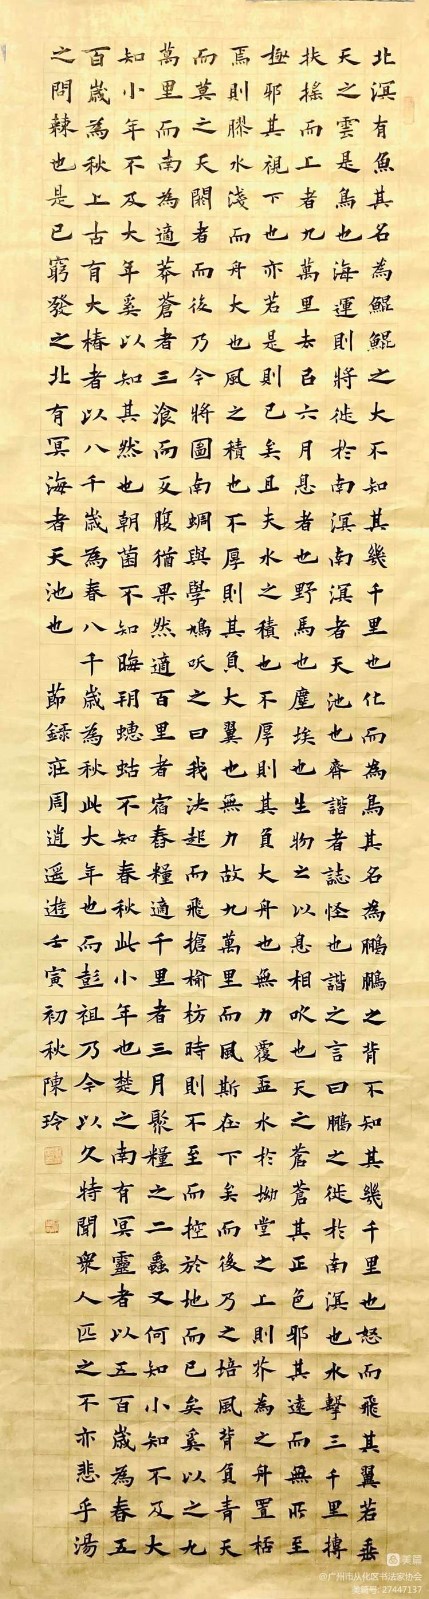 北溟有魚其名為鯤鯤之大不知其幾千里也化而為鳥其名為鵬鵬之背不知其幾千里也怒而飛其翼若垂
天之雲是鳥也海運則將徙於南溟南溟者天池也齊諧者誌怪也諧之言曰鵬之徙於南溟也水擊三千里摶
扶搖而上者九萬里去以六月息者也野馬也塵埃也生物之以息相吹也天之蒼蒼其正色邪其遠而無所至
極邪其視下也亦若是則已矣且夫水之積也不厚則其負大舟也無力覆盃水於坳堂之上則芥為之舟置杯
焉則膠水淺而舟大也風之積也不厚則其負大翼也無力故九萬里而風斯在下矣而後乃之培風背負青天
而莫之夭閼者而後乃今將圖南蜩與學鳩笑之曰我決起而飛搶榆枋時則不至而控於地而已矣奚以之九
萬里而南為適莽蒼者三湌而反腹猶果然適百里者宿舂糧適千里者三月聚糧之二蟲又何知小知不及大
知小年不及大年奚以知其然也朝菌不知晦朔蟪蛄不知春秋此小年也楚之南有冥靈者以五百歲為春五
百歲為秋上古有大椿者以八千歲為春八千歲為秋此大年也而彭祖乃今以久特聞衆人匹之不亦悲乎湯
之問棘也是已窮發之北有冥海者天池也 節錄莊周逍遥遊壬寅初秋陳玲
美篇
@广州市从化区书法家协会
美篇号: 27447137